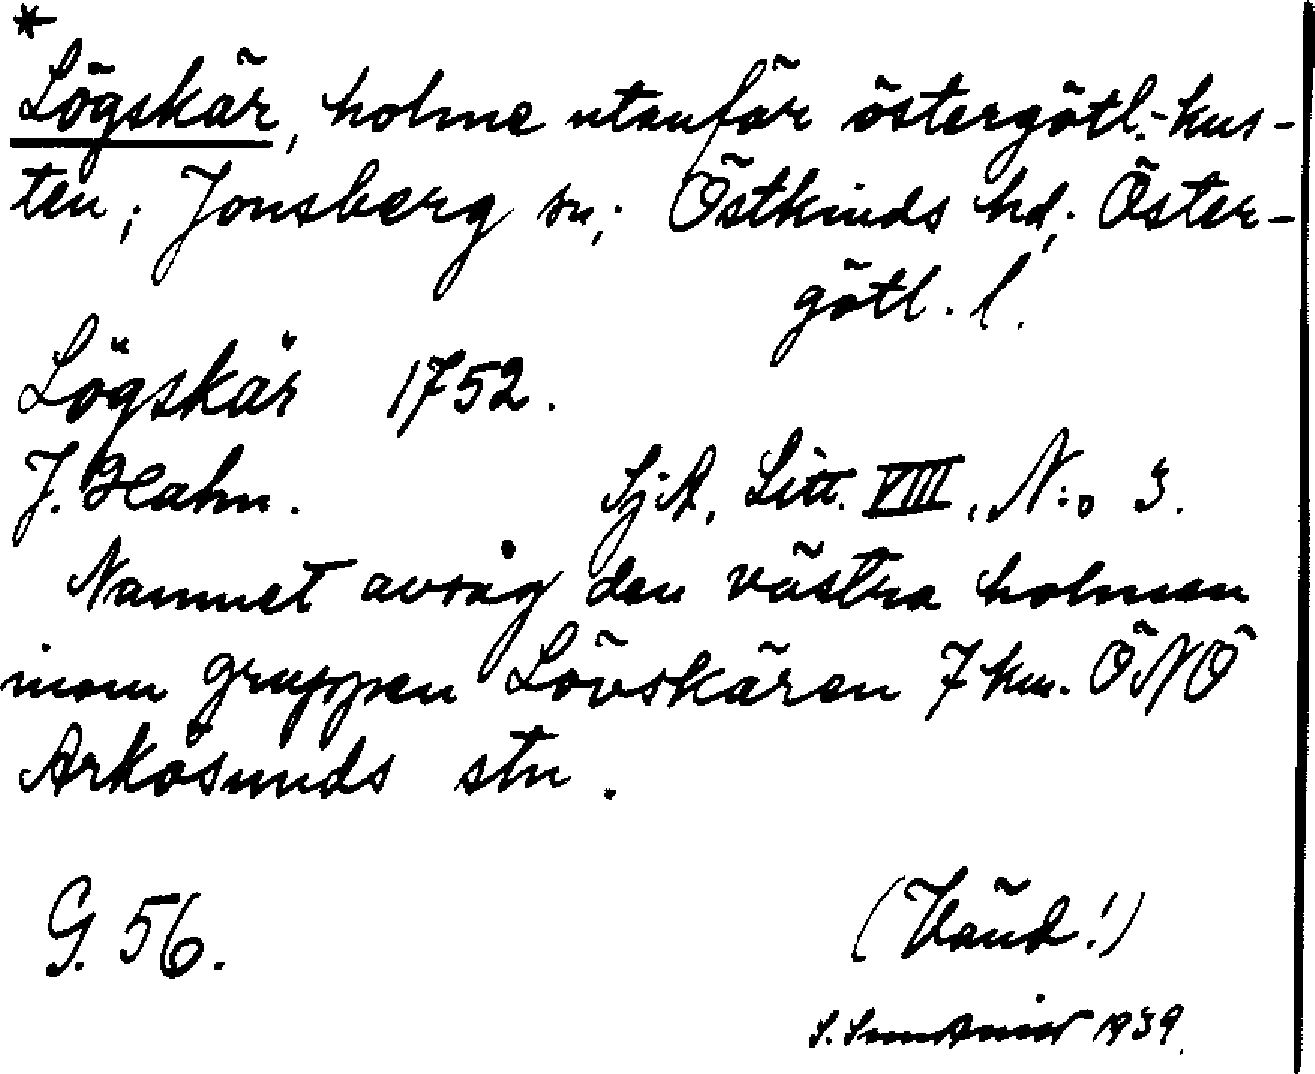 *
Lögskär, holme utanför östergötl.-kus-
ten; Jonsberg sn; Östkinds hd; Öster-
götl. l.
Lögskär 1752.
J. Hahn. SjA, Litt. VIII, N:o 3.
Namnet avsåg den västra holmen
inom gruppen Lövskären 7 km. ÖNÖ
Arkösunds stn.
G. 56.
(Vänd!)
S. 1939.